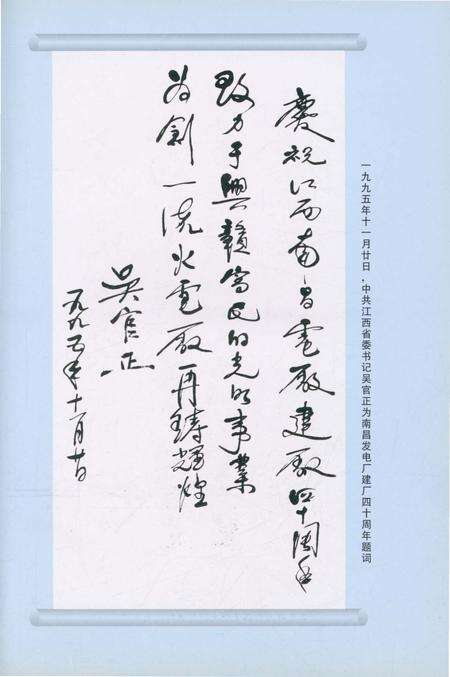 一九九五年十一月廿日，中共江西省委书记吴官正为南昌发电厂建厂四十周年题词
慶祝江西南昌電厰建厰四十周年
致力于興贛富民的光明事業
为創一流火電厰再鑄輝煌
吴官正
一九九五年十一月廿日